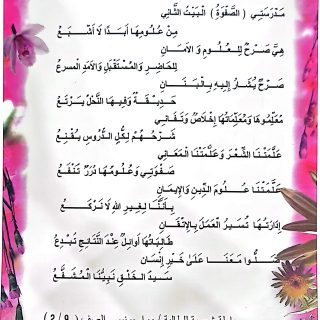 مَدْرَسَتِي ( الصَّفْوَةُ ) الْبَيْتُ الثَّانِي
مِنْ عُلُومِهَا أَبَدًا لَا أَشْبَعُ
هِيَ صَرْحٌ لِلْعُلُومِ وَ الْأَمَانِ
لِلْحَاضِرِ وَالْمُسْتَقْبَلِ وَالْأَمَدِ الْمسرعُ
صَرْحٌ يُشَارُ إِلَيْهِ بِالْبَنَانِ
حَدِيقَةٌ وَفِيهَا النَّحْلُ يَرْتَعُ
مُعَلِّمُوهَا وَمُعَلِّمَاتُهَا إِخْلَاصٌ وَتَفَانِي
شَرْحُهُمْ لِكُلِّ الدُّرُوسِ يُقْنِعُ
عَلَّمَتْنَا الشِّعْرَ وَعَلَّمَتْنَا الْمَعَانِي
صَفْوَتِي وَعُلُومُهَا دُرَرٌ تَنْفَعُ
عَلَّمَتْنَا عُلُومَ الدِّينِ وَالْإِيمَانِ
بِأَنَّنَا لِغَيْرِ اللهِ لَا نَرْكَعُ
إِدَارَتُهَا تُسَيِّرُ الْعَمَلَ بِالْإِتْقَانِ
طَالِبَاتُهَا أَوَائِلٌ عِنْدَ النَّتَائِجِ تُبْدِعُ
صَلُّوا مَعَنَا عَلَىٰ خَيْرِ إِنْسَانِ
سَيِّدُ الْخَلْقِ نَبِيُّنَا الْمُشَفَّعُ
( 2 / 9 )